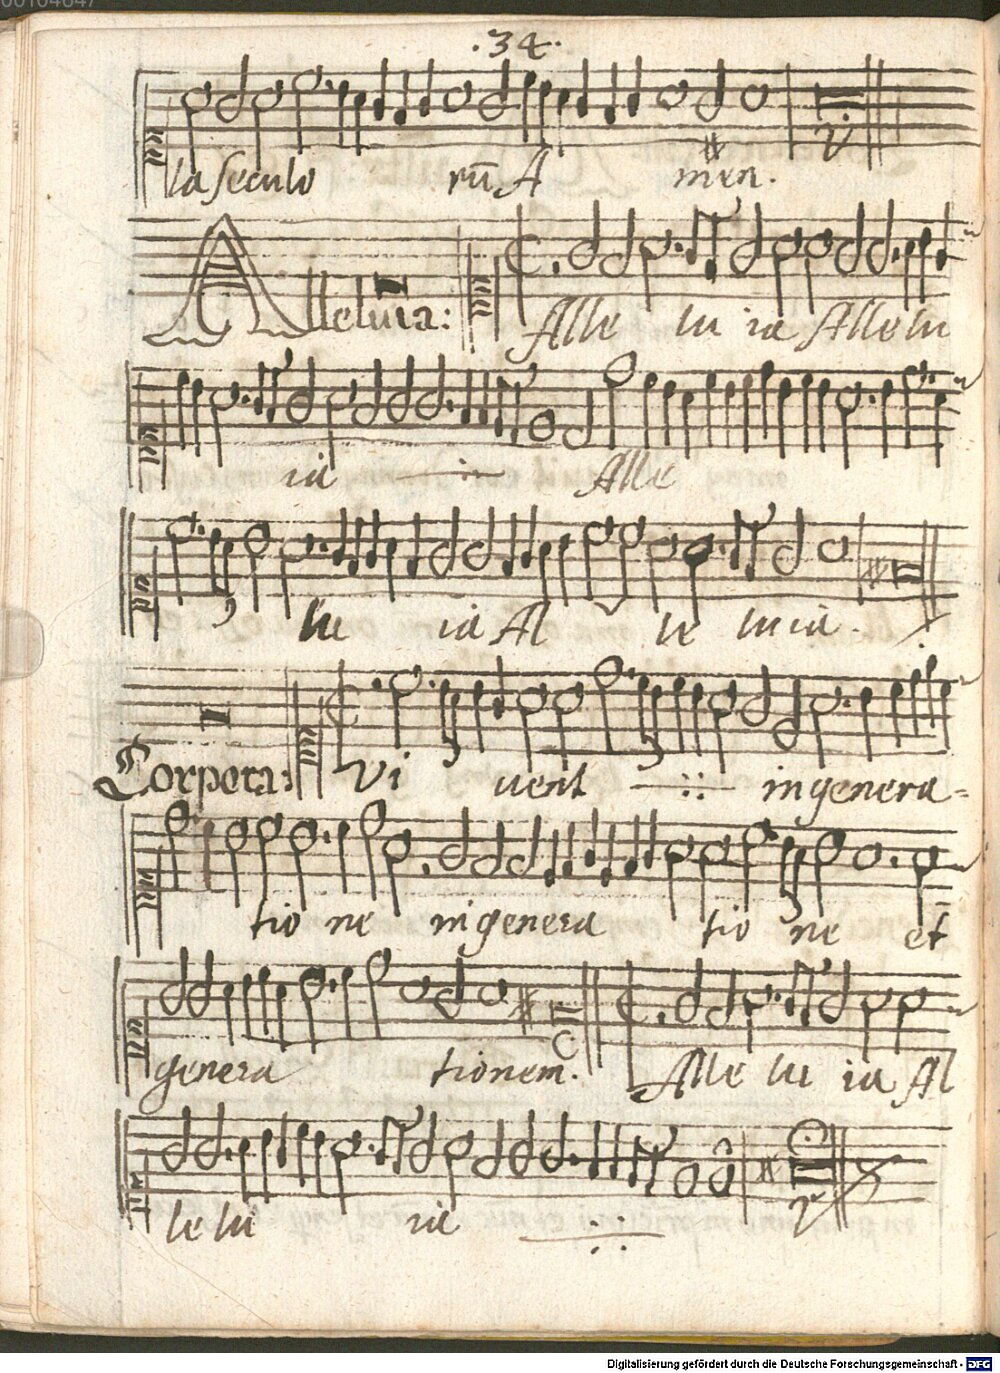 .34.
la seculo rū A men.
Alleluia: Alle lu ia Allelu
ia Alle
lu ia Al le luia.
Corpora: Vi vent in genera-
tio ne in genera tio ne et
genera tionem. Alle lu ia Al
le lu ia
Digitalisierung gefördert durch die Deutsche Forschungsgemeinschaft - DFG